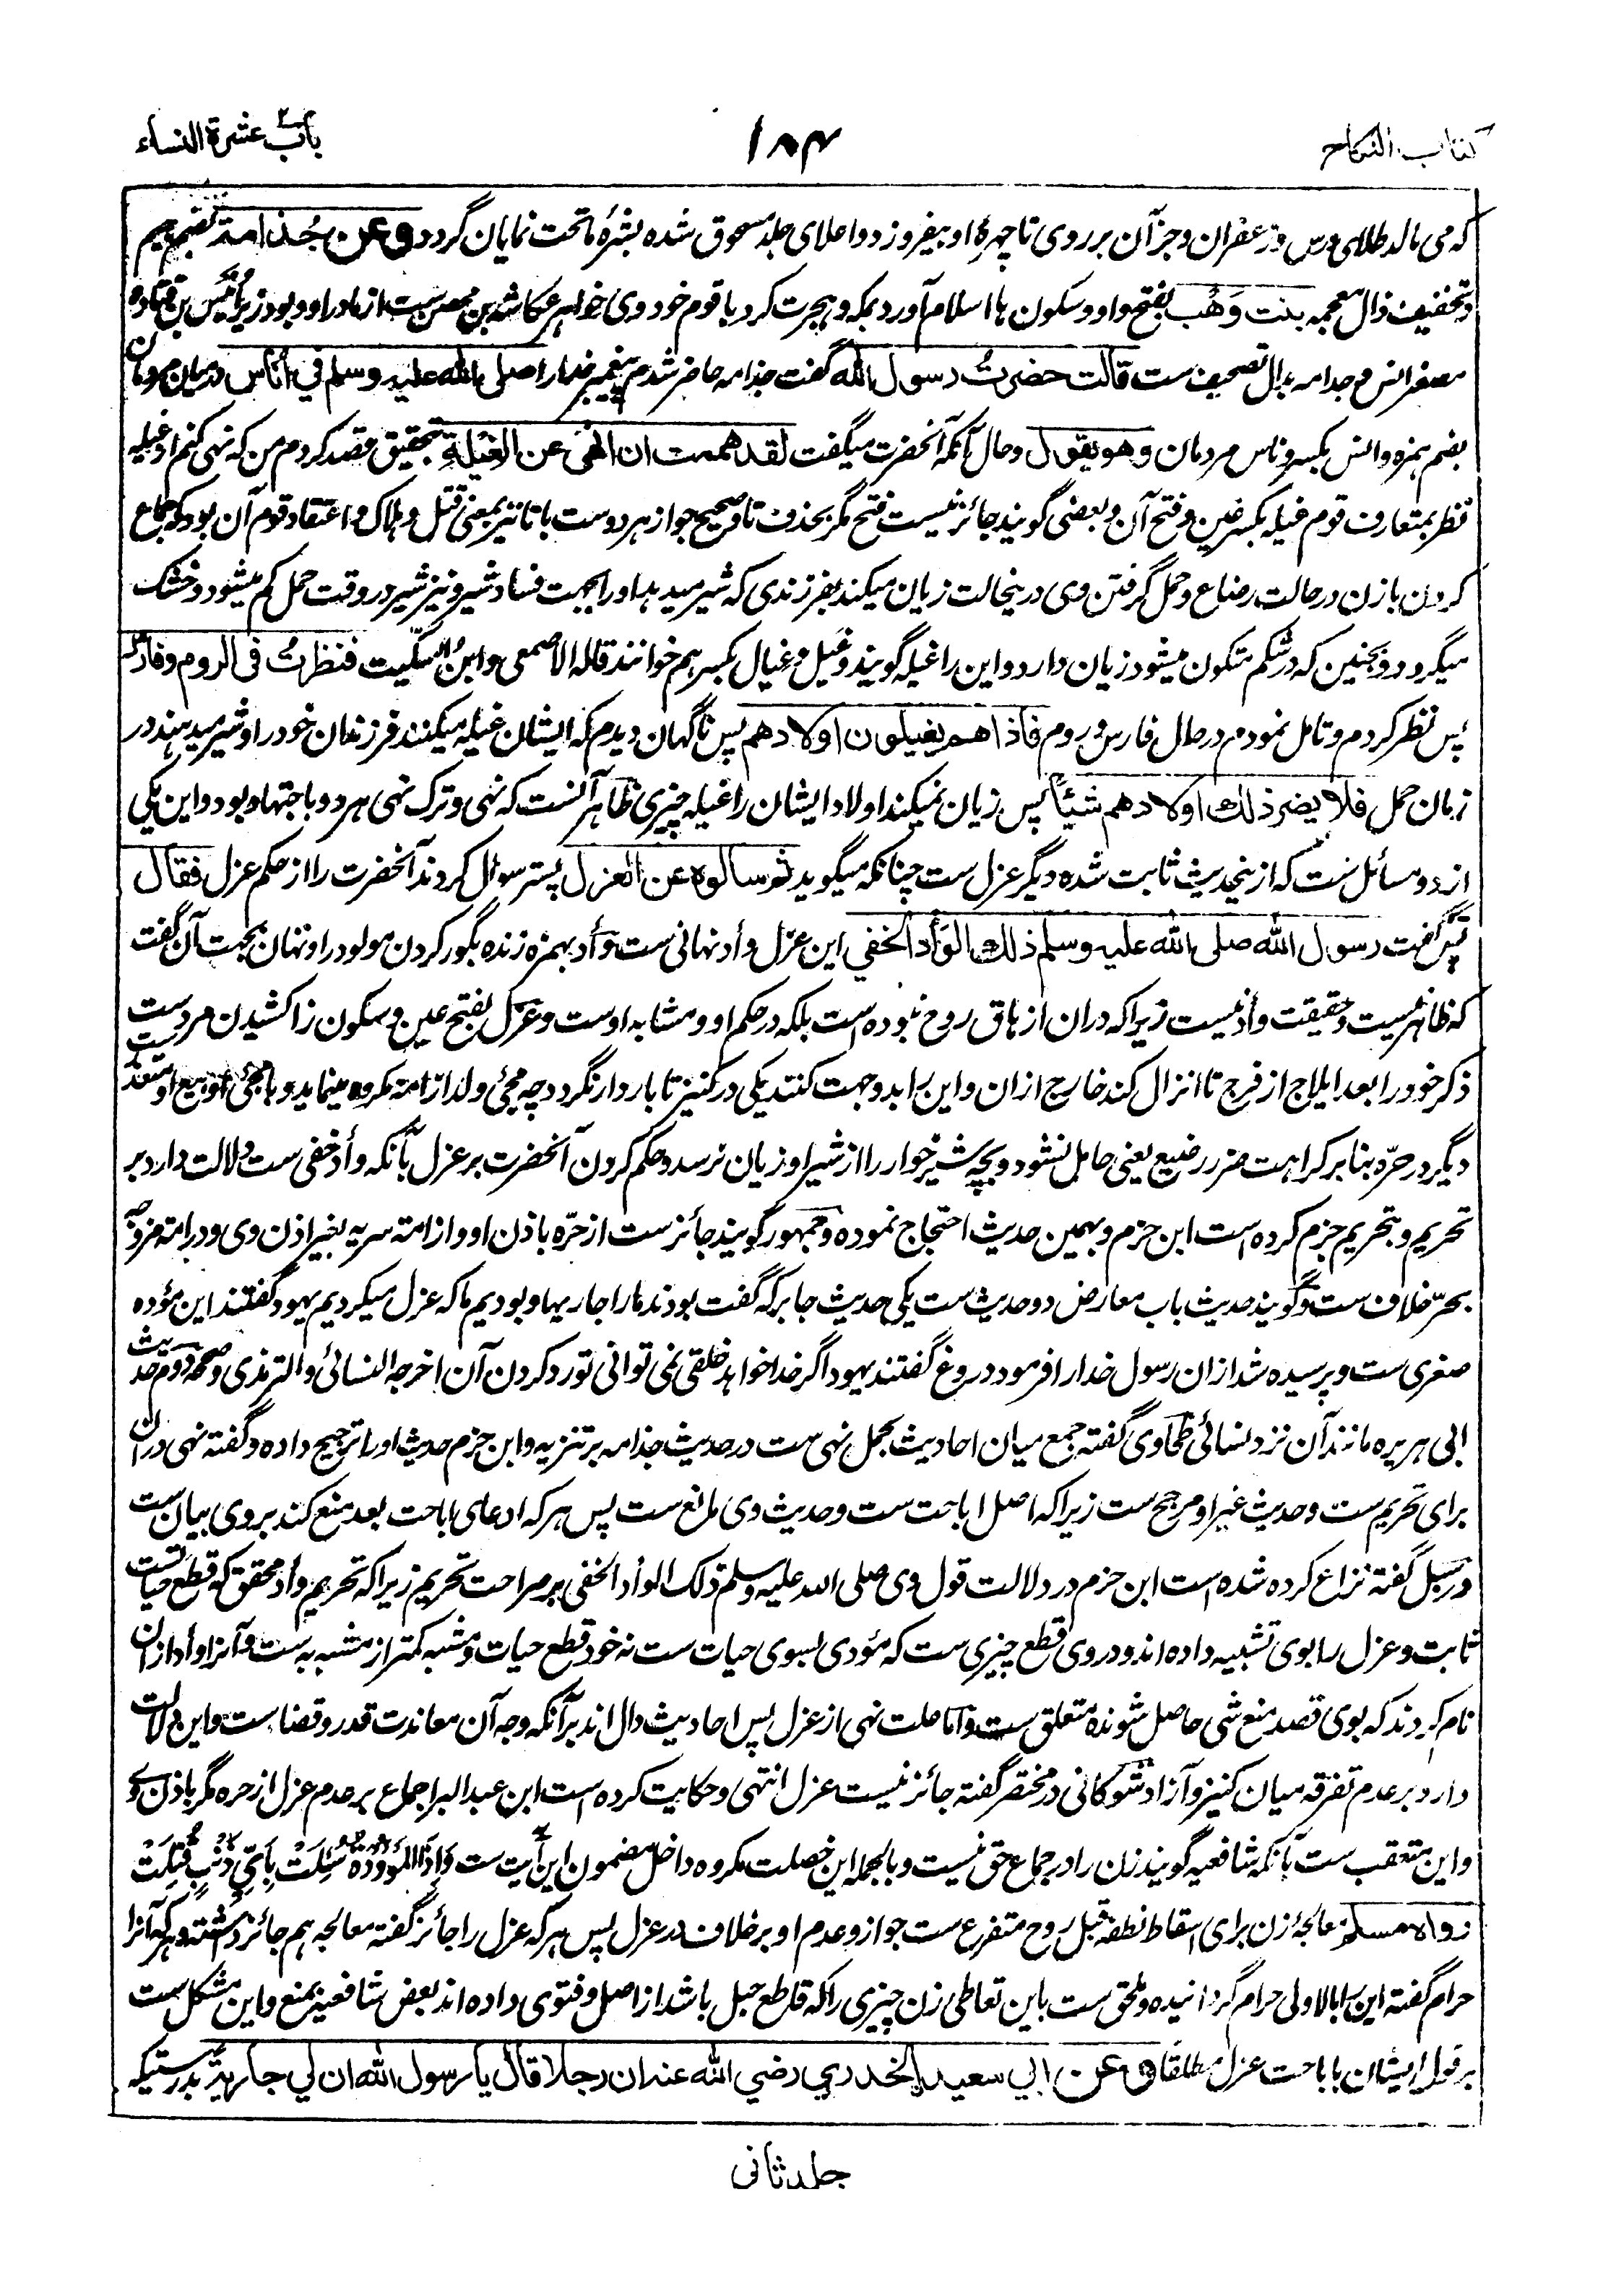 کتاب النکاح
۱۸۴
باب عشرة النساء
که می مالد طلای ورس و زعفران و جز آن بر روی تا چهرهٔ او بیفروزد و اعلای جلد مسحوق شده بشرهٔ ماتحت نمایان گردد وعن جُذامة بضم جیم
و تخفیف ذال معجمه بنت وَهْب بفتح واو و سکون ها اسلام آورد بمکه و هجرت کرد با قوم خود و وی خواهر عکاشه بن محصن ست از مادر او و بود زیر اُنَیس بن قتاده
مصغر انس و جدامه بدال تصحیف ست قالت حضرتُ رسول الله گفت جذامه حاضر شدم پیغمبر خدا را صلی الله علیه وسلم في أناس درمیان مردمان
بضم همزه و انس بکسر و ناس مردمان وهو یقول و حال آنکه آنحضرت میگفت لقد هممت ان انهی عن الغیلة بتحقیق قصد کردم من که نهی کنم از غیله
نظر بمتعارف قوم غیله بکسر غین و فتح آن و بعضی گویند جائز نیست فتح مگر بحذف تا و صحیح جواز هر دوست با تا نیز بمعنی قتل و هلاک و اعتقاد قوم آن بود که جماع
کردن با زن در حالت رضاع و حمل گرفتن وی درینحالت زیان میکند بفرزندی که شیر میدهد او را بجهت فساد شیر و نیز شیر در وقت حمل کم میشود و خشک
میگردد و بجنین که در شکم متکون میشود زیان دارد و این را غیله گویند و غَیل و غیال بکسر هم خوانند قاله الاصمعی و ابن السکیت فنظرتُ فی الروم وفارس
پس نظر کردم و تامل نمودم در حال فارس و روم فاذا هم یغیلون اولادهم پس ناگهان دیدم که ایشان غیله میکنند فرزندان خود را و شیر میدهند در
زمان حمل فلا یضر ذلك اولادهم شیئاً پس زیان نمیکند اولاد ایشان را غیله چیزی ظاهر آنست که نهی و ترک نهی هر دو باجتهاد بود و این یکی
از دو مسائل ست که ازینحدیث ثابت شده دیگر عزل ست چنانکه میگوید ثم سالوه عن العزل پستر سوال کردند آنحضرت را از حکم عزل فقال
پس گفت رسول الله صلی الله علیه وسلم ذلك الوَأد الخفي این عزل وأد نهانی ست و وأد بهمزه زنده بگور کردن مولود را و نهان بجهت آن گفت
که ظاهر نیست و حقیقت وأد نیست زیرا که دران ازهاق روح نبوده است بلکه در حکم او و مشابه اوست و عزل بفتح عین و سکون زا کشیدن مردست
ذکر خود را بعد ایلاج از فرج تا انزال کند خارج ازان و این را بدو جهت کنند یکی در کنیز تا باردار نگردد چه مجیٔ ولد از امة مکروه مینماید و با مجیٔ او بیع او متعذر
دیگر در حرّه بنابر کراهت ضرر رضیع یعنی حامل نشود و بچه شیرخوار را از شیر او زیان نرسد و حکم کردن آنحضرت بر عزل بآنکه وأد خفی ست دلالت دارد بر
تحریم و بتحریم جزم کرده است ابن حزم و بهمین حدیث احتجاج نموده و جمهور گویند جائز ست از حرّه باذن او و از امة سریه بغیر اذن وی و در امة مزوجه
بحرّ خلاف ست و گویند حدیث باب معارض دو حدیث ست یکی حدیث جابر که گفت بودند ما را جاریها و بودیم ما که عزل میکردیم یهود گفتند این مؤده
صغری ست و پرسیده شد ازان رسول خدا را فرمود دروغ گفتند یهود اگر خدا خواهد خلقی نمی توانی تو رد کردن آن اخرجه النسائی و الترمذی وصححه دوم حدیث
ابی هریره مانند آن نزد نسائی طحاوی گفته جمع میان احادیث بحمل نهی ست در حدیث جذامه بر تنزیه و ابن حزم حدیث او را ترجیح داده و گفته نهی دران
برای تحریم ست و حدیث غیر او مرجح ست زیرا که اصل اباحت ست و حدیث وی مانع ست پس هر که ادعای اباحت بعد منع کند بر وی بیان ست
و در سبل گفته نزاع کرده شده است ابن حزم در دلالت قول وی صلی الله علیه وسلم ذلک الوأد الخفی بر صراحت تحریم زیرا که تحریم وأد محقق که قطع حیات ست
ثابت و عزل را بوی تشبیه داده اند و در وی قطع چیزی ست که مؤدی بسوی حیات ست نه خود قطع حیات و مشبه کمتر از مشبه به ست و آنرا وأد ازان
نام کردند که بوی قصد منع شی حاصل شونده متعلق ست و اما علت نهی از عزل پس احادیث دال اند بر آنکه وجه آن معاندت قدر و قضاست و این دلالت
دارد بر عدم تفرقه میان کنیز و آزاد شوکانی در مختصر گفته جائز نیست عزل انتهی و حکایت کرده است ابن عبدالبر اجماع بر عدم عزل از حره مگر باذن وی
و این متعقب ست بآنکه شافعیه گویند زن را در جماع حق نیست و بالجمله این خصلت مکروه داخل مضمون این آیت ست وَاِذَا المَوْؤدَةُ سُئِلَتْ بِاَیِّ ذَنْبٍ قُتِلَتْ
رواه مسلم معالجهٔ زن برای اسقاط نطفه قبل روح متفرع ست جواز و عدم او بر خلاف در عزل پس هر که عزل را جائز گفته معالجه هم جائز داشته و هر که آنرا
حرام گفته این را بالاولی حرام گردانیده و ملحق ست باین تعاطی زن چیزی را که قاطع حبل باشد از اصل و فتوی داده اند بعض شافعیه بمنع و این مشکل ست
بر قول ایشان باباحت عزل مطلقا وعن ابي سعيد الخدري رضي الله عنه ان رجلا قال يا رسول الله ان لي جارية بدرستیکه
جلد ثانی